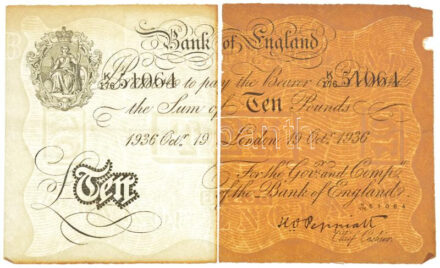 Bank of England
K/176 51064 K/176 51064
Promise to pay the Bearer on
the Sum of Ten Pounds
1936 Octr. 19 London 19 Octr. 1936
For the Govr. and Compa.
£Ten of the Bank of England.
K/176 51064
K O Peppiatt
Chief Cashier